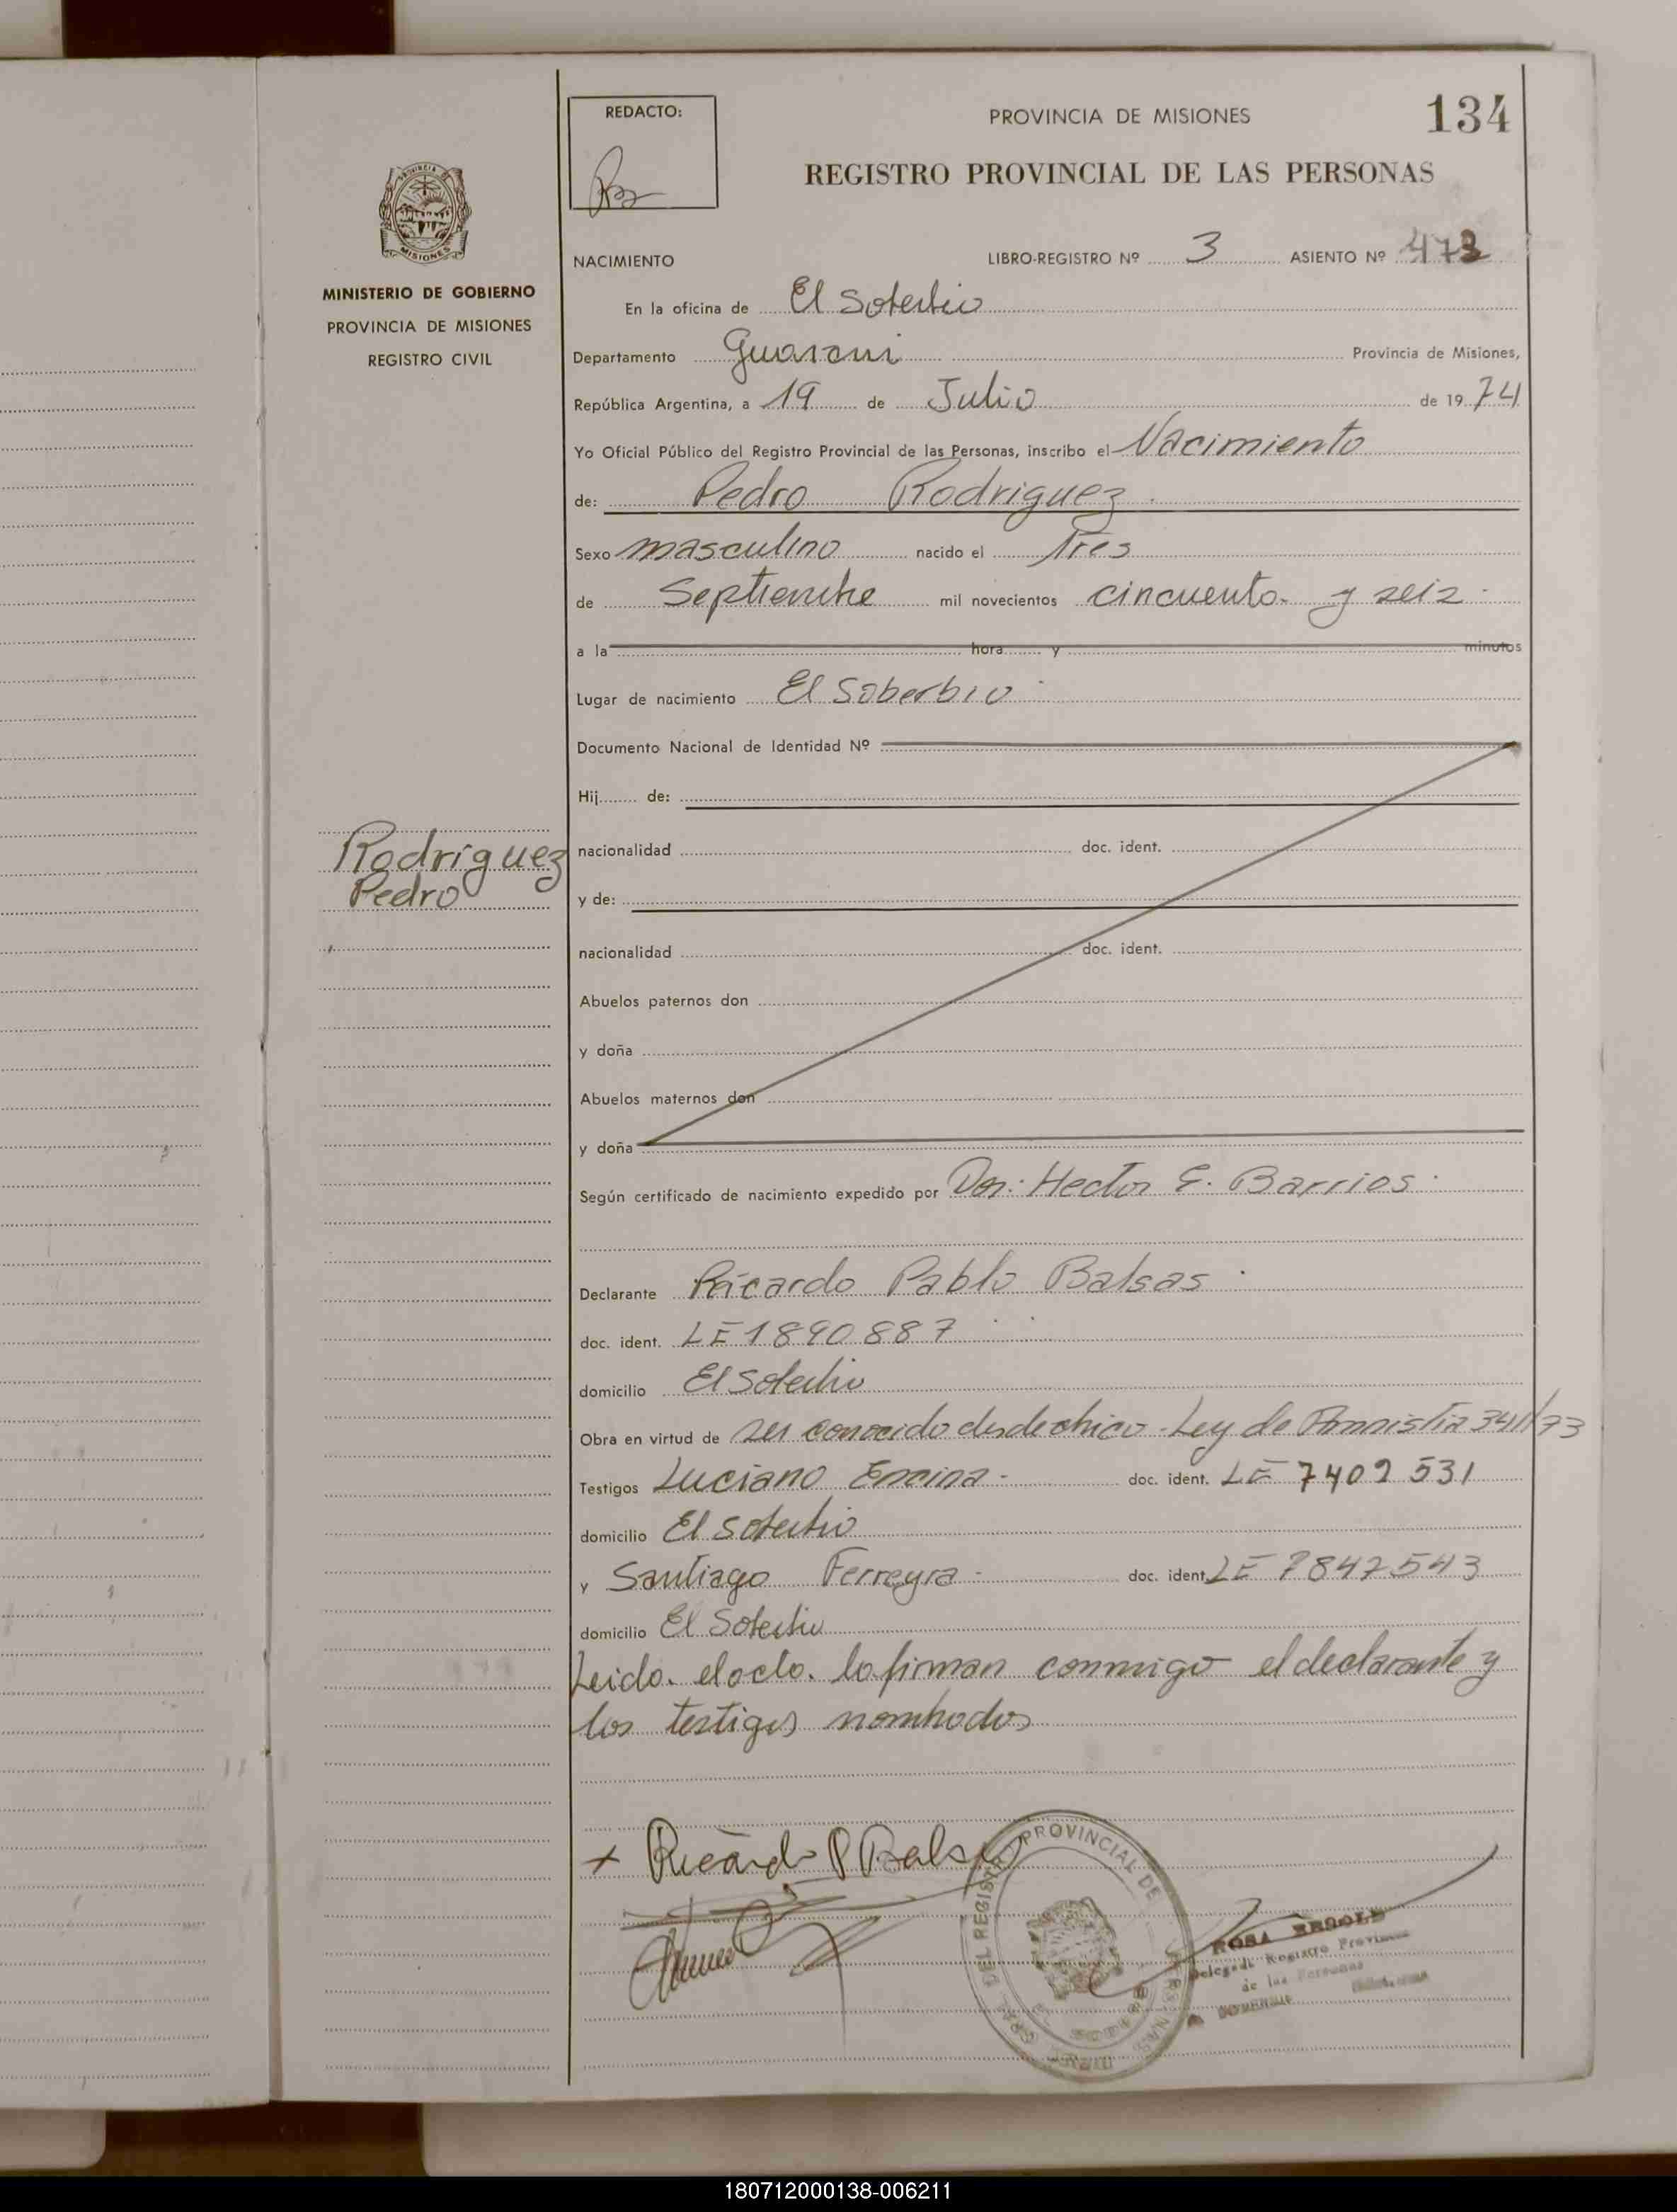 134
REDACTO:
PROVINCIA DE MISIONES
REGISTRO PROVINCIAL DE LAS PERSONAS
MISIONES
MINISTERIO DE GOBIERNO
PROVINCIA DE MISIONES
REGISTRO CIVIL
NACIMIENTO LIBRO-REGISTRO Nº 3 ASIENTO Nº 473
En la oficina de El Soberbio
Departamento Guarani Provincia de Misiones,
República Argentina, a 19 de Julio de 1974
Yo Oficial Público del Registro Provincial de las Personas, inscribo el Nacimiento
de: Pedro Rodriguez
Sexo masculino nacido el Tres
de Septiembre mil novecientos cincuenta y seiz
a la hora y minutos
Lugar de nacimiento El Soberbio
Documento Nacional de Identidad Nº
Hij de:
Rodriguez
Pedro
nacionalidad doc. ident.
y de:
nacionalidad doc. ident.
Abuelos paternos don
y doña
Abuelos maternos don
y doña
Según certificado de nacimiento expedido por Dr: Hector E. Barrios
Declarante Ricardo Pablo Balsas
doc. ident. LE 1890887
domicilio El Soberbio
Obra en virtud de ser conocido desde chico - Ley de Amnistia 341/73
Testigos Luciano Encina - doc. ident. LE 7402531
domicilio El Soberbio
y Santiago Ferreyra - doc. ident. LE 7847543
domicilio El Soberbio
Leido el acta lo firman conmigo el declarante y
los testigos nombrados
+ Ricardo P Balsas
DEL REGISTRO PROVINCIAL DE
ROSA
Delegada Registro Provincial
de las Personas
180712000138-006211